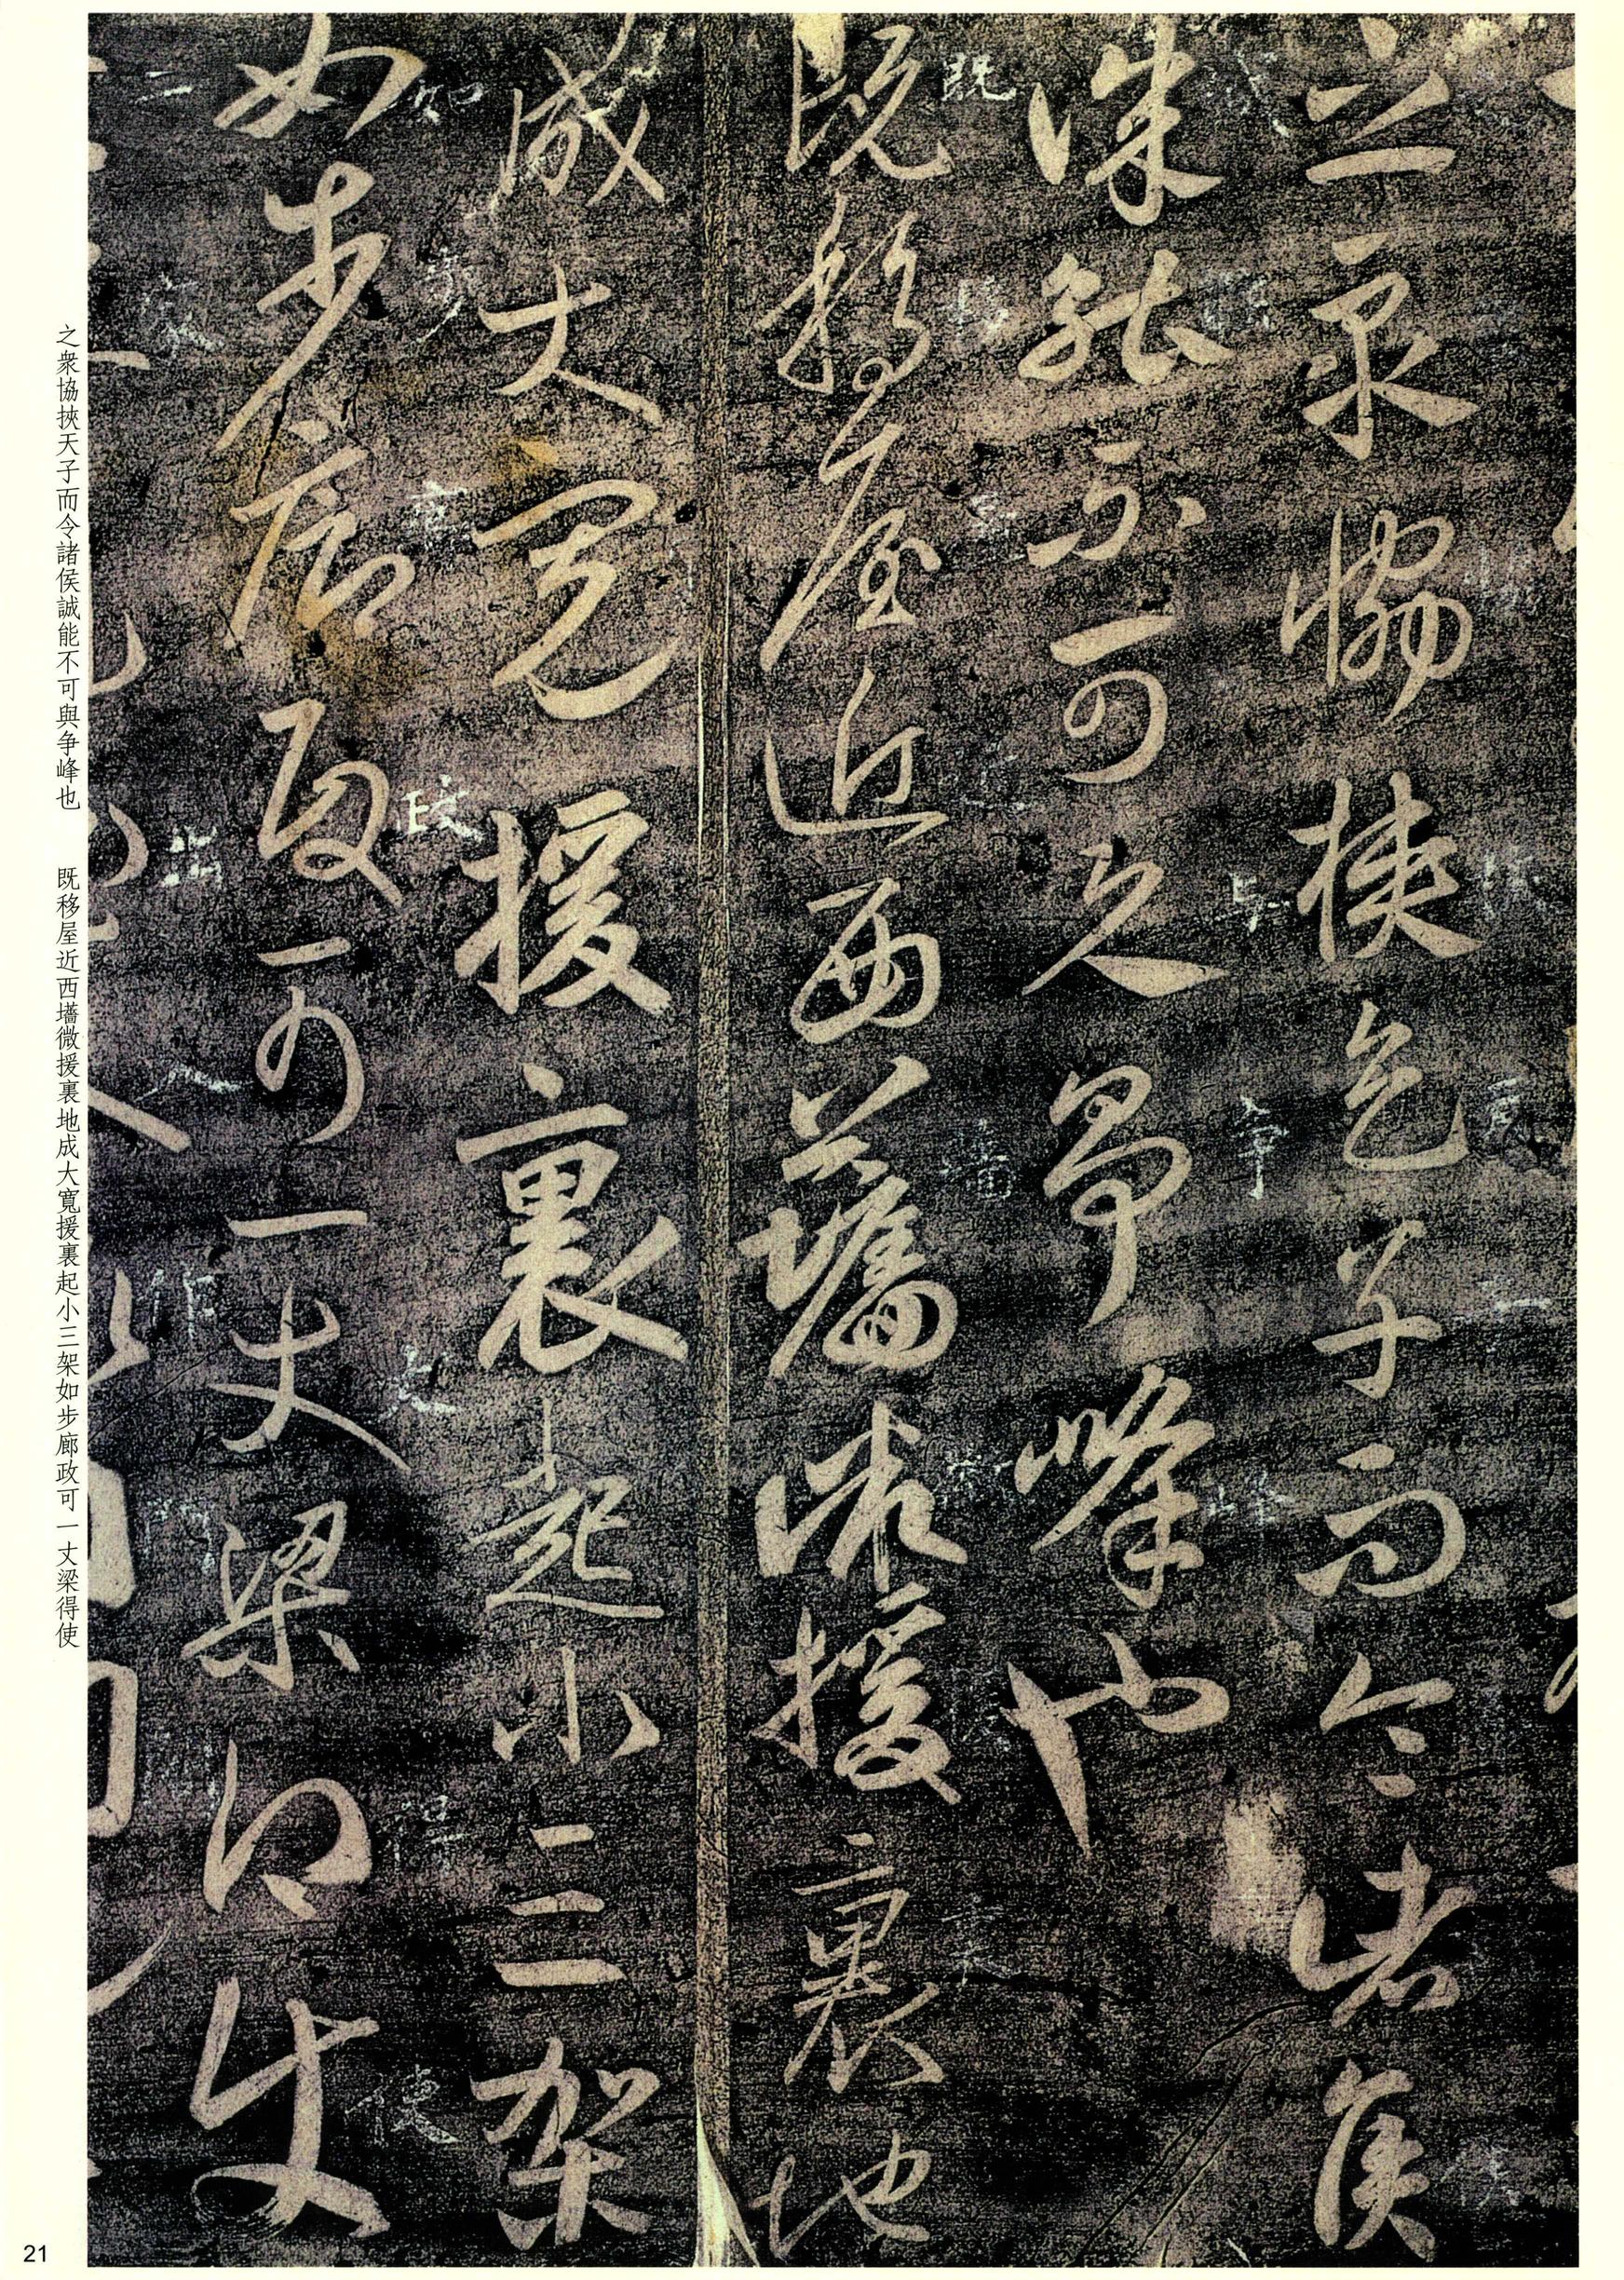 之衆協挾天子而令諸侯
誠能不可與争峰也
既移屋近西墻微援裏地
成大寬援裏起小三架
如步廊政可一丈梁得使
之衆協挾天子而令諸侯誠能不可與争峰也
既移屋近西墻微援裏地成大寬援裏起小三架如步廊政可一丈梁得使
21